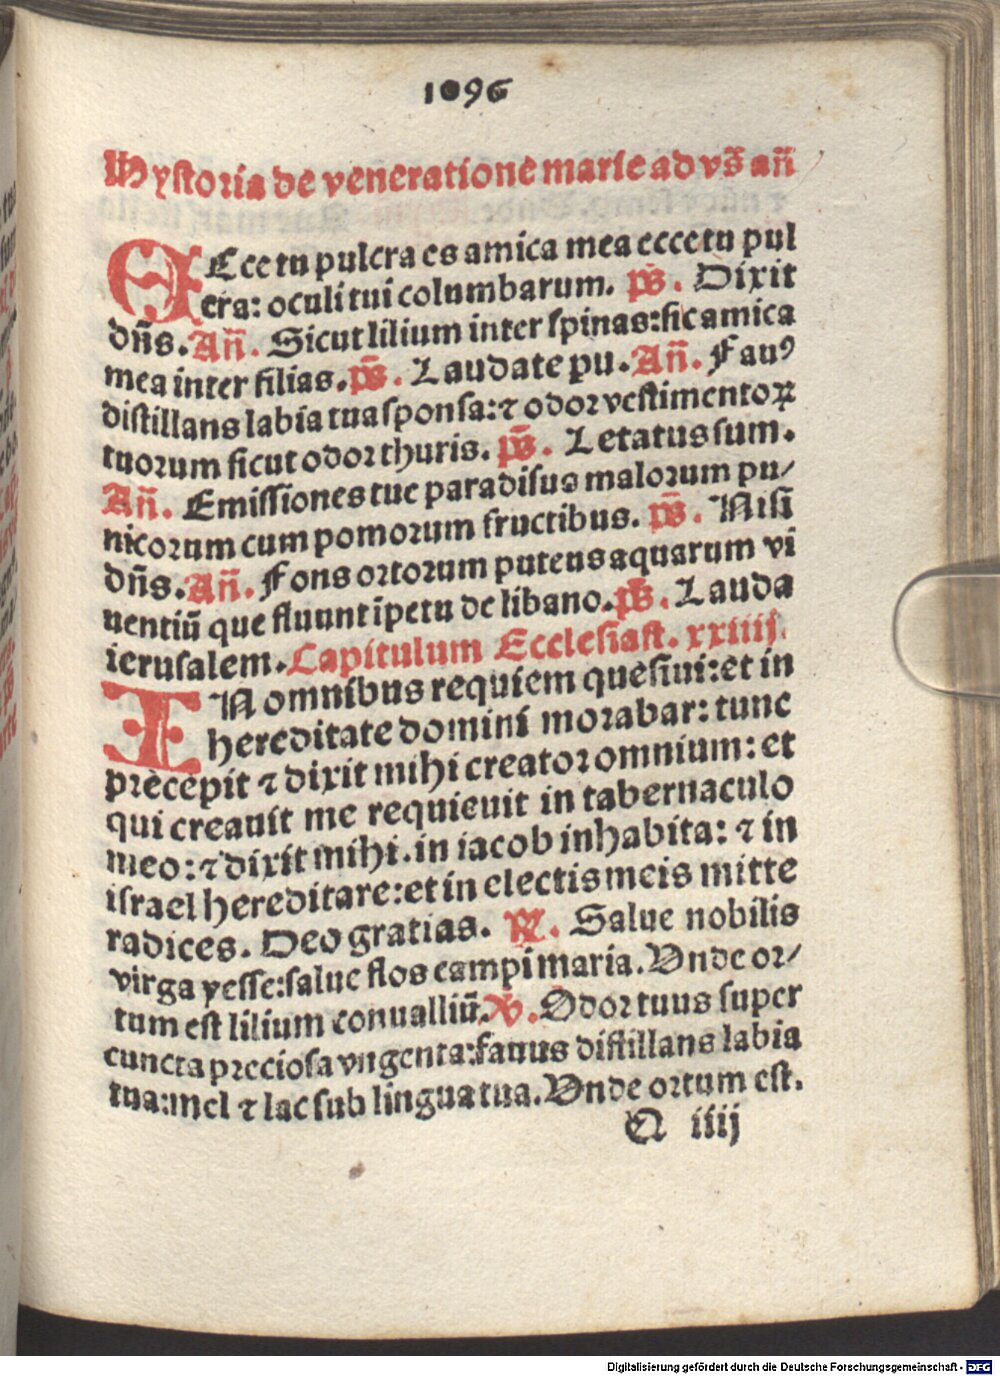 1096
Hystoria de veneratione marie ad vs̄ an̄
ECce tu pulcra es amica mea ecce tu pul
cra: oculi tui columbarum. p̄s. Dixit
dn̄s. An̄. Sicut lilium inter spinas: sic amica
mea inter filias. p̄s. Laudate pu. An̄. Fauꝰ
distillans labia tua sponsa: ⁊ odor vestimentoꝝ
tuorum sicut odor thuris. p̄s. Letatus sum.
An̄. Emissiones tue paradisus malorum pu/
nicorum cum pomorum fructibus. p̄s. Nisi
dn̄s. An̄. Fons ortorum puteus aquarum vi
uentiū que fluunt ipetu de libano. p̄s. Lauda
ierusalem. Capitulum Ecclesiast. xxiiij.
IN omnibus requiem quesiui: et in
hereditate domini morabar: tunc
precepit ⁊ dixit mihi creator omnium: et
qui creauit me requieuit in tabernaculo
meo: ⁊ dixit mihi. in iacob inhabita: ⁊ in
israel hereditare: et in electis meis mitte
radices. Deo gratias. ℟. Salue nobilis
virga yesse: salue flos campi maria. Vnde or/
tum est lilium conualliū. ℣. Odor tuus super
cuncta preciosa vngenta: fauus distillans labia
tua: mel ⁊ lac sub lingua tua. Vnde ortum est.
Q iiij
Digitalisierung gefördert durch die Deutsche Forschungsgemeinschaft - DFG